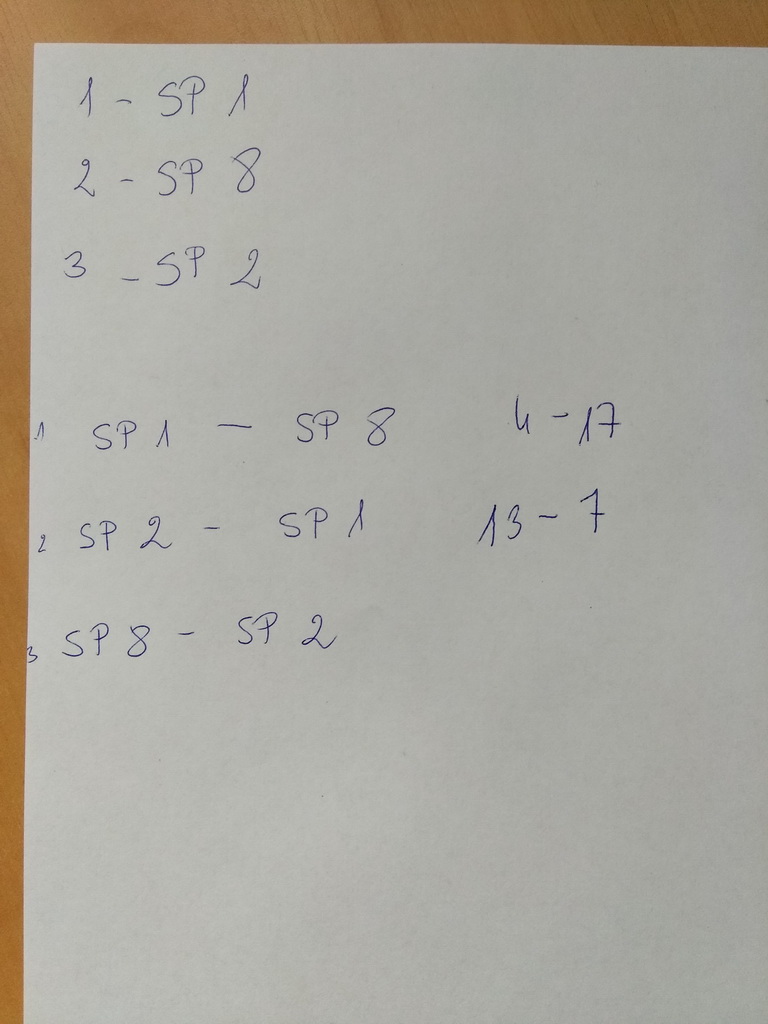 1 - SP 1
2 - SP 8
3 - SP 2
1 SP 1 - SP 8 4 - 17
2 SP 2 - SP 1 13 - 7
3 SP 8 - SP 2